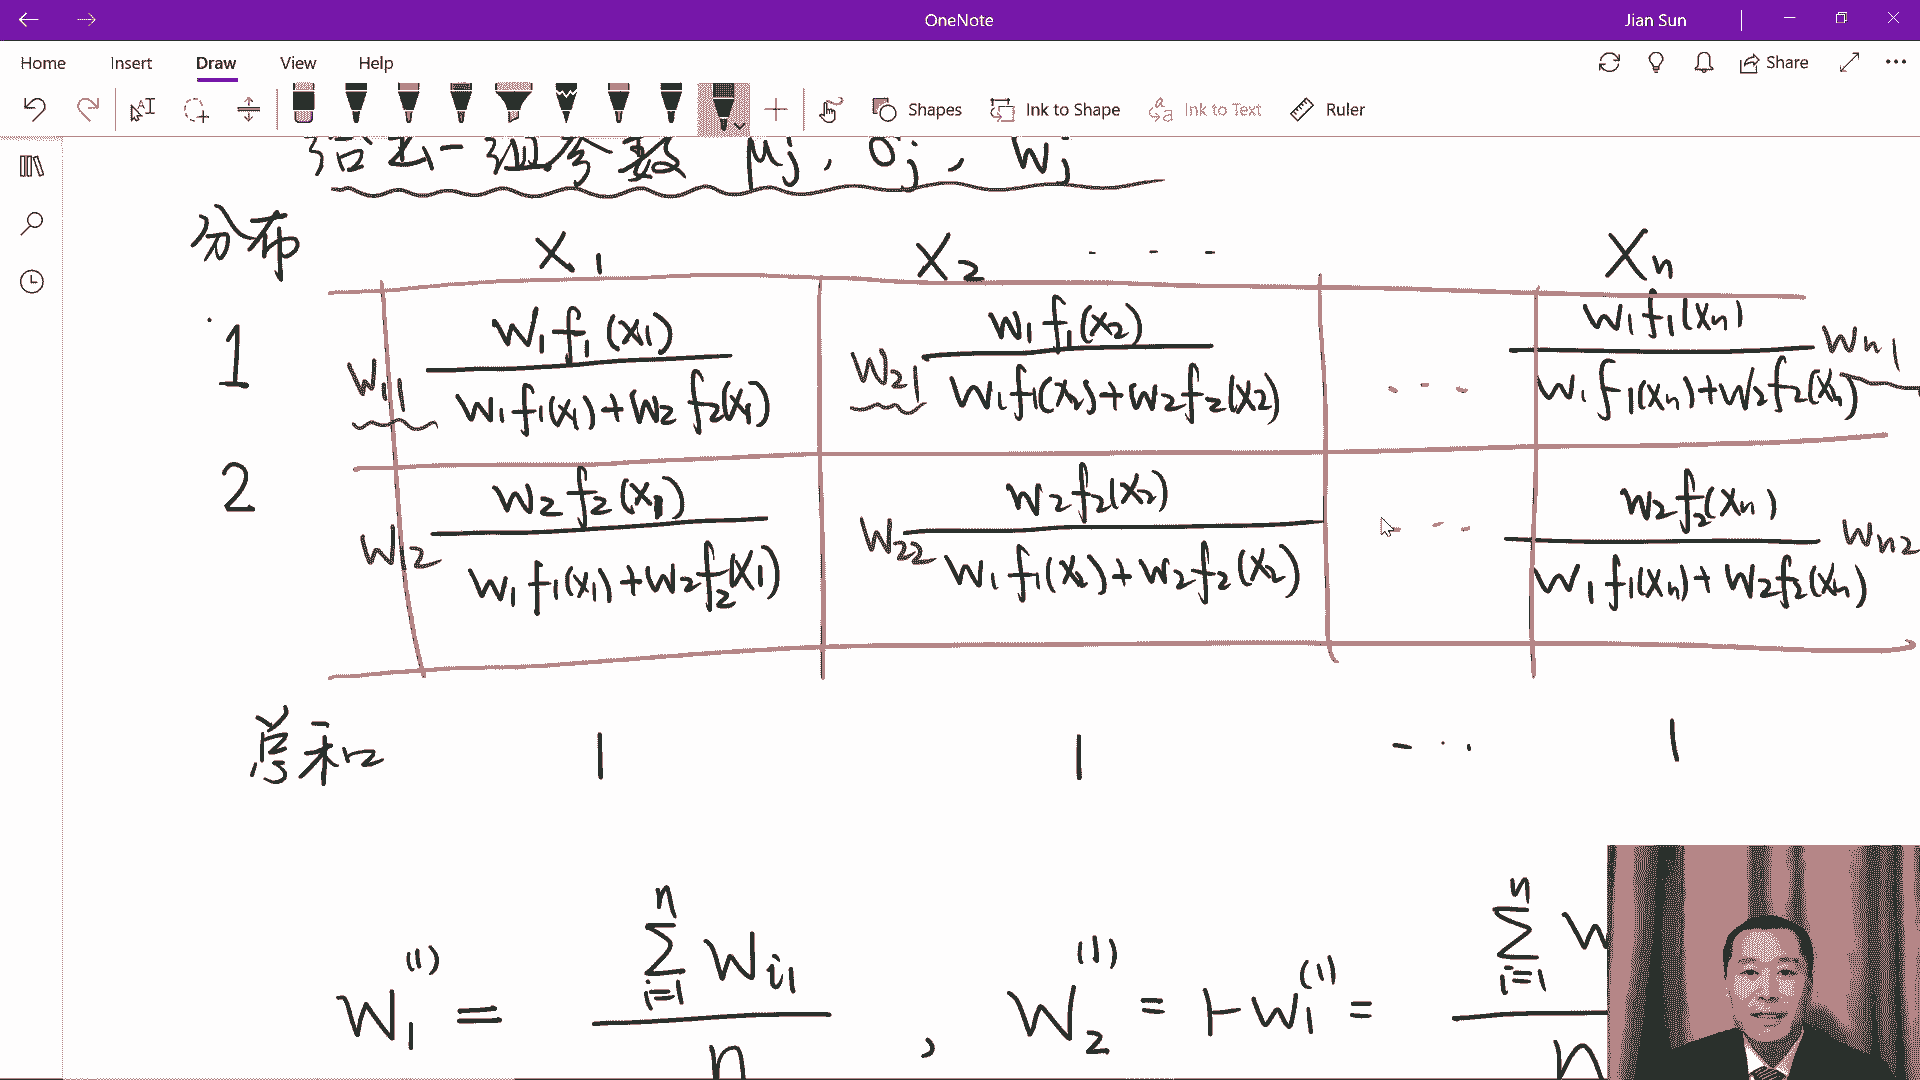 OneNote
Jian Sun
Home Insert Draw View Help
Share
Shapes Ink to Shape Ink to Text Ruler
给出一组参数 μj, σj, Wj
分布 X1 X2 ... Xn
1 W11 W1f1(X1) / W1f1(X1)+W2f2(X1) W21 W1f1(X2) / W1f1(X2)+W2f2(X2) ... W1f1(Xn) / W1f1(Xn)+W2f2(Xn) Wn1
2 W12 W2f2(X1) / W1f1(X1)+W2f2(X1) W22 W2f2(X2) / W1f1(X2)+W2f2(X2) ... W2f2(Xn) / W1f1(Xn)+W2f2(Xn) Wn2
总和 1 1 ... 1
W1^(1) = Σ_{i=1}^{n} Wi1 / n , W2^(1) = 1-W1^(1) = Σ_{i=1}^{n} W / n